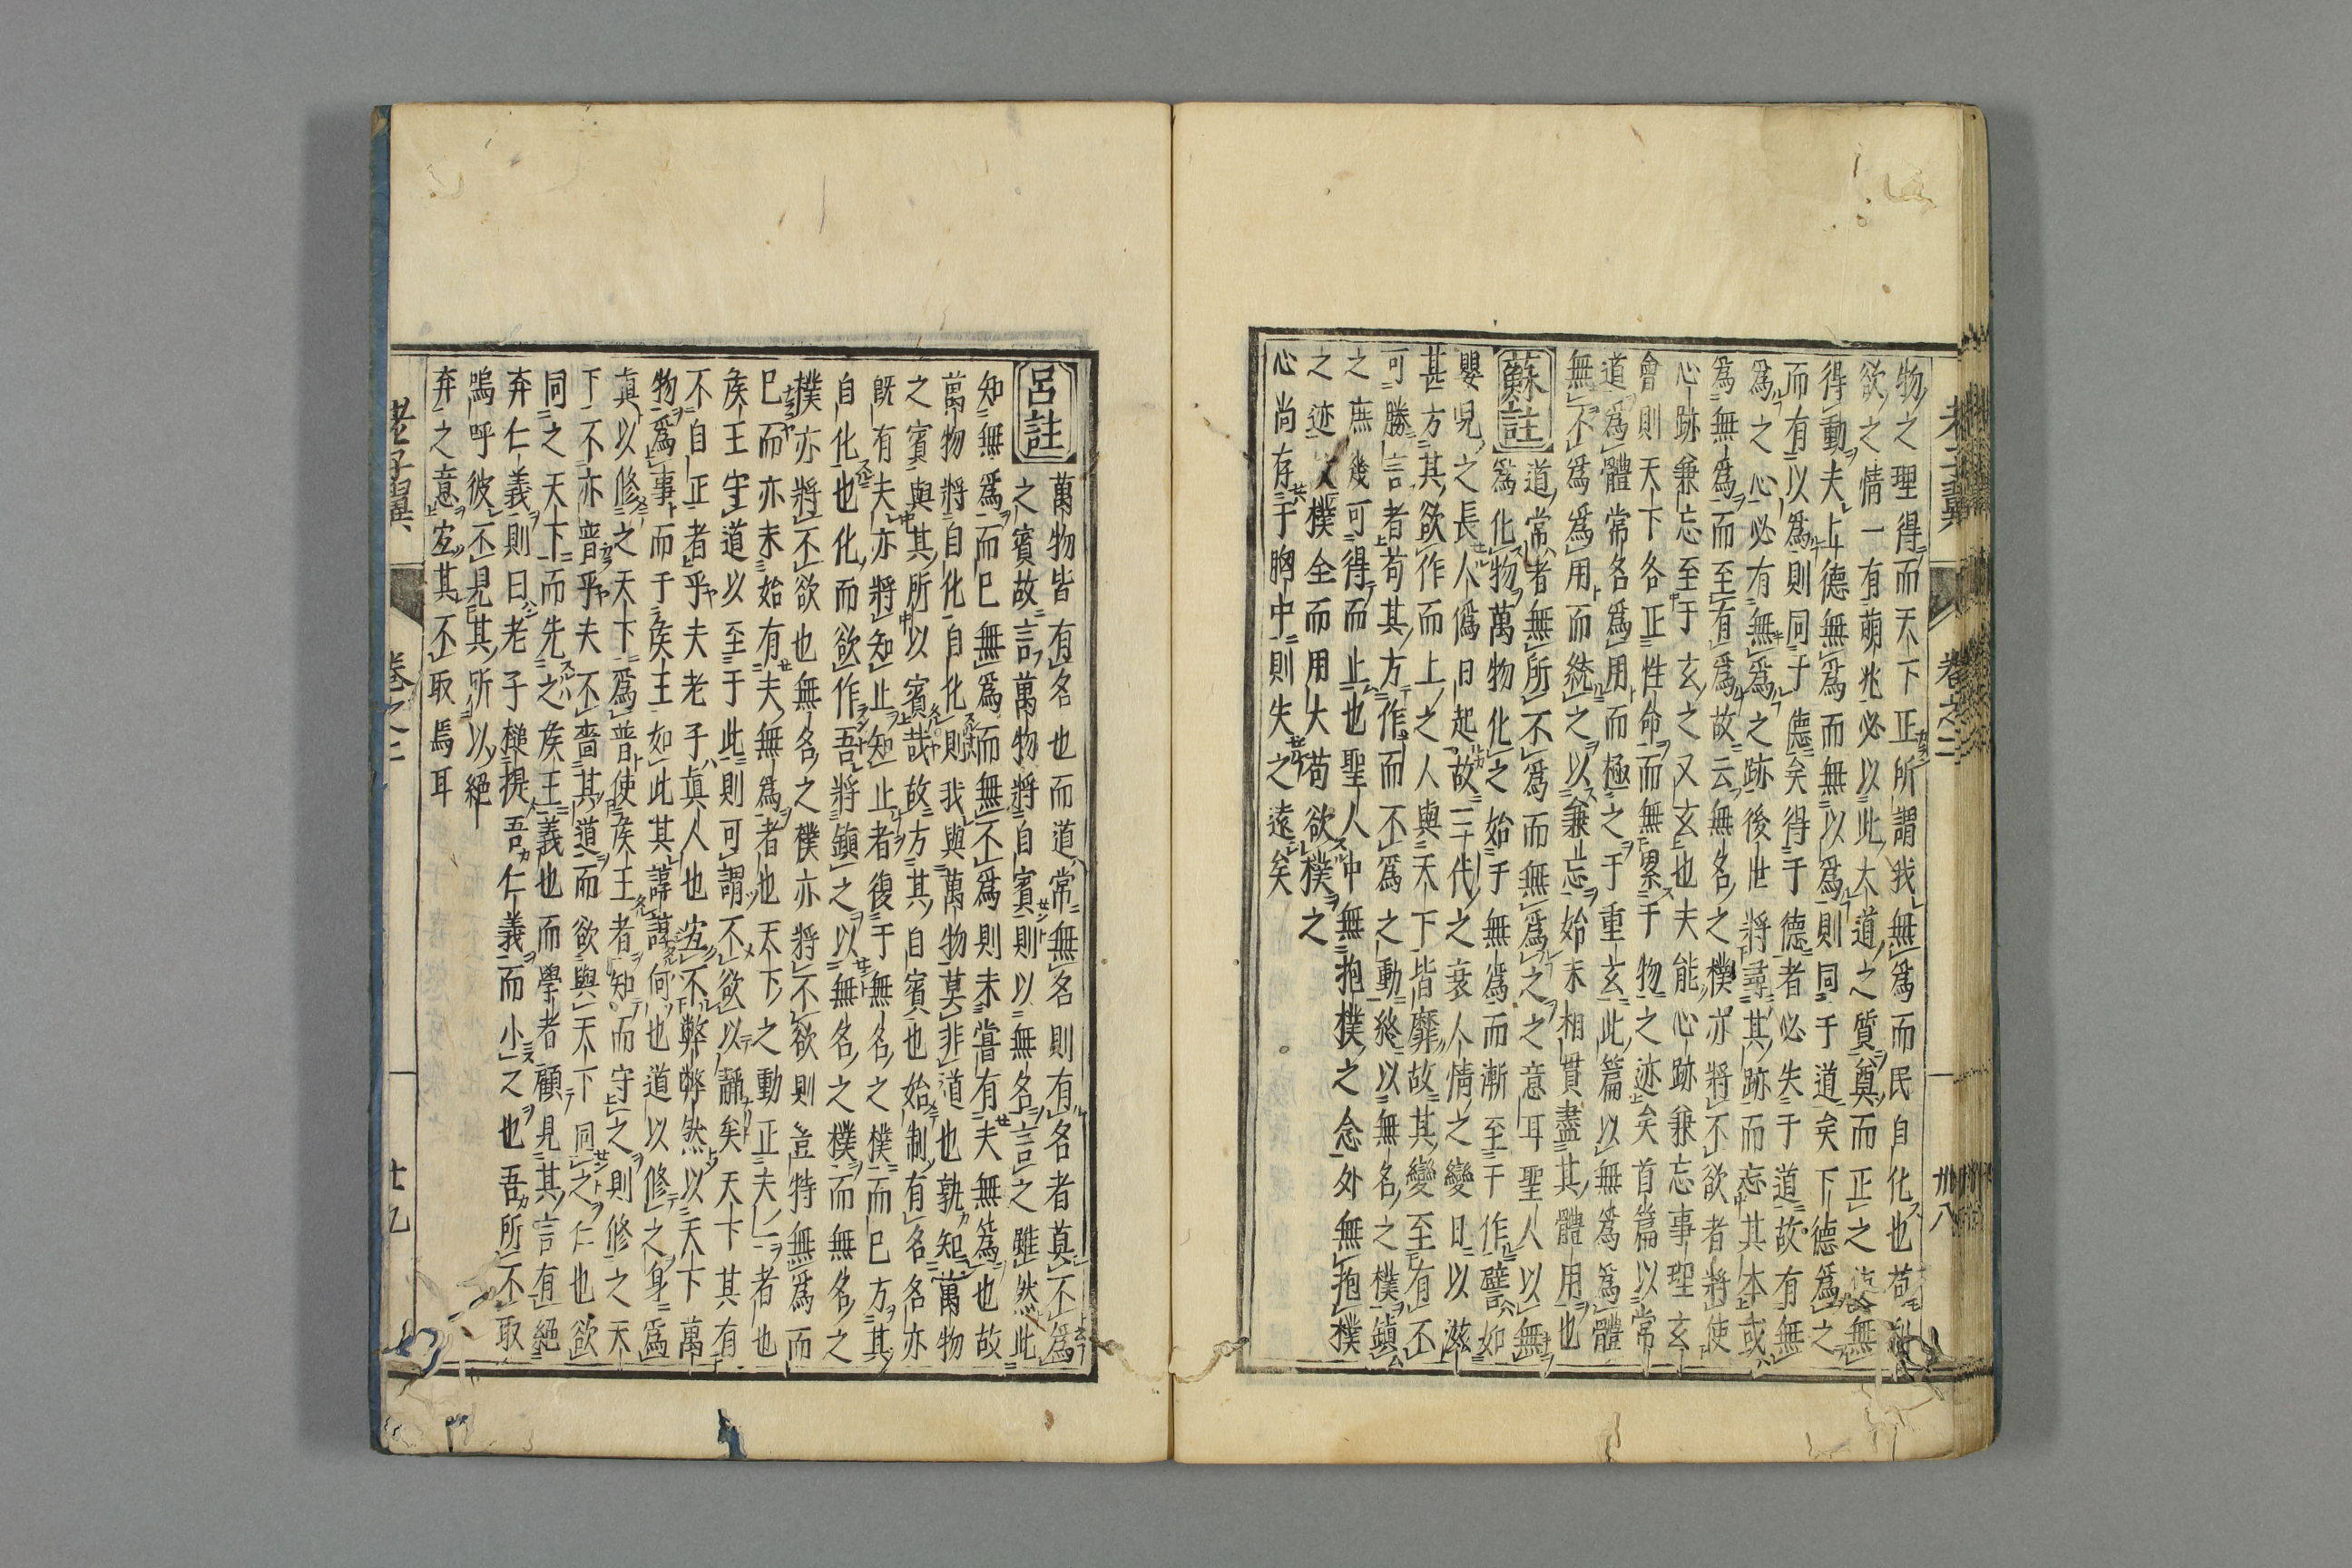 物之理得而天下正所謂我無爲而民自化也苟
欲之情一有萌兆必以此大道之質奠而正之使無
得動夫上德無爲而無以爲則同于道矣下德爲之
而有以爲則同于德矣得于德者必失于道故有無
爲之心必有無爲之跡後世將尋其跡而忘其本或
爲無爲而至有爲故云無名之樸亦將不欲者將使
心跡兼忘至于玄之又玄也夫能心跡兼忘事理玄
會則天下各正性命而無累于物之迹矣首篇以常
道爲體常名爲用而極之于重玄此篇以無爲爲體
無不爲爲用而統之以兼忘始末相貫盡其體用也
蘇註 道常者無所不爲而無爲之之意耳聖人以無
爲化物萬物化之始于無爲而漸至于作譬如
嬰兒之長人僞日起故三代之衰人情之變日以滋
甚方其欲作而上之人與天下皆靡故其變至有不
可勝言者苟其方作而不爲之動終以無名之樸鎮
之庶幾可得而止也聖人中無抱樸之念外無抱樸
之迹 樸全而用大苟欲樸之
心尚存于胸中則失之遠矣
呂註 萬物皆有名也而道常無名則有名者莫不爲
之賓故言萬物將自賓則以無名言之雖然此
知無爲而已無爲而無不爲則未嘗有夫無爲也故
萬物將自化自化則我與萬物莫非道也孰知萬物
之賓與其所以賓哉故方其自賓也始制有名名亦
既有夫亦將知止知止者復于無名之樸而已方其
自化也化而欲作吾將鎮之以無名之樸而無名之
樸亦將不欲也無名之樸亦將不欲則豈特無爲而
已而亦未始有夫無爲者也天下之動正夫一者也
矦王守道以至于此則可謂不欲以靜矣天下其有
不自正者乎夫老子眞人也宐不弊弊然以天下萬
物爲事而于矦王如此其諄諄何也道以修之身爲
眞以修之天下爲普使矦王者知而守之則修之天
下不亦普乎夫不嗇其道而欲與天下同之仁也欲
同之天下而先之矦王義也而學者顧見其言有絕
弃仁義則曰老子槌提吾仁義而小之也吾所不取
嗚呼彼不見其所以絕
弃之意宐其不取焉耳
老子翼 卷之二 卅八
老子翼 卷之二